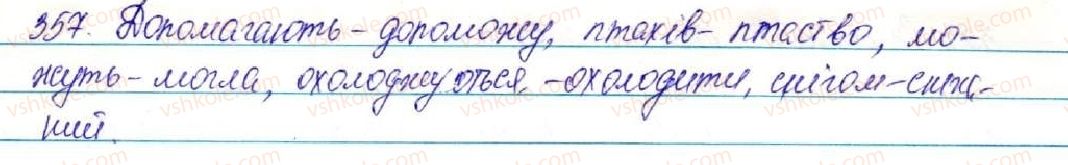 357. Допомагають - допоможу, птахів - птаство, мо-
жуть - могла, охолоджуються - охолодити, снігом - сніж-
ний.